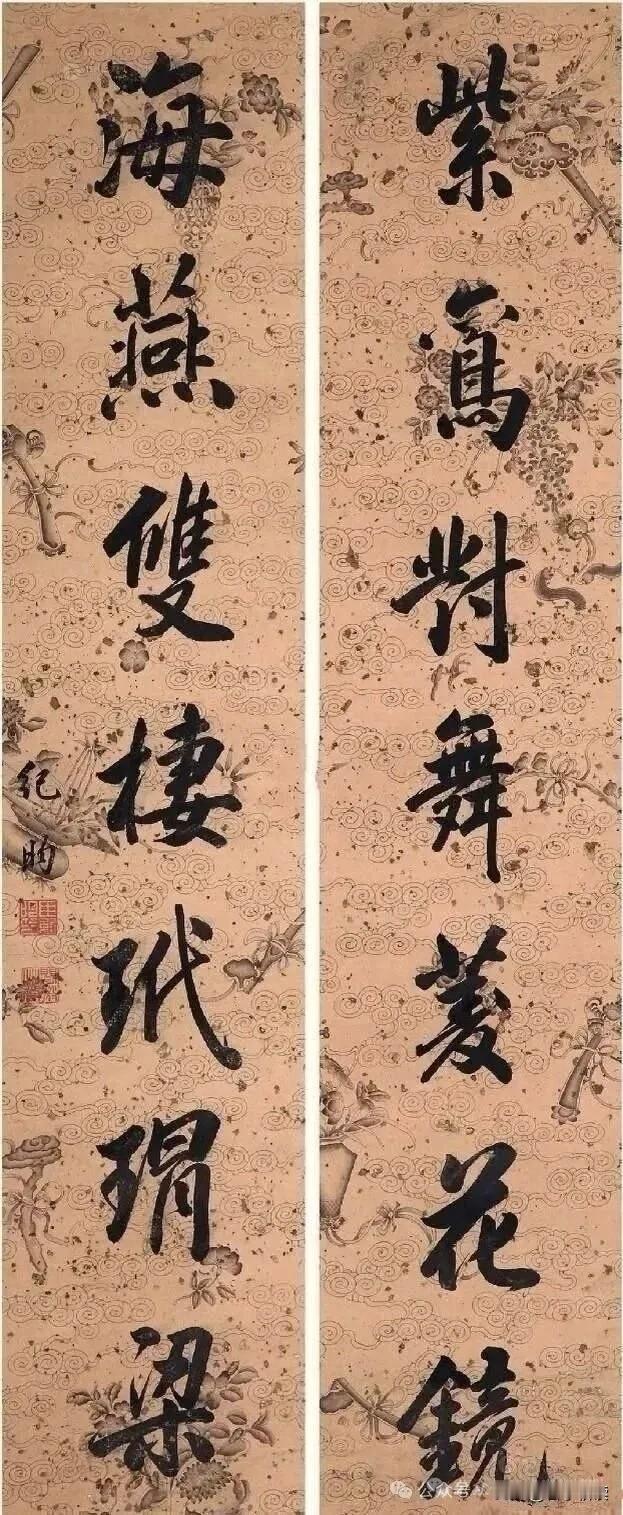 紫鸞對舞菱花鏡
海燕雙棲玳瑁梁
紀昀
公众号